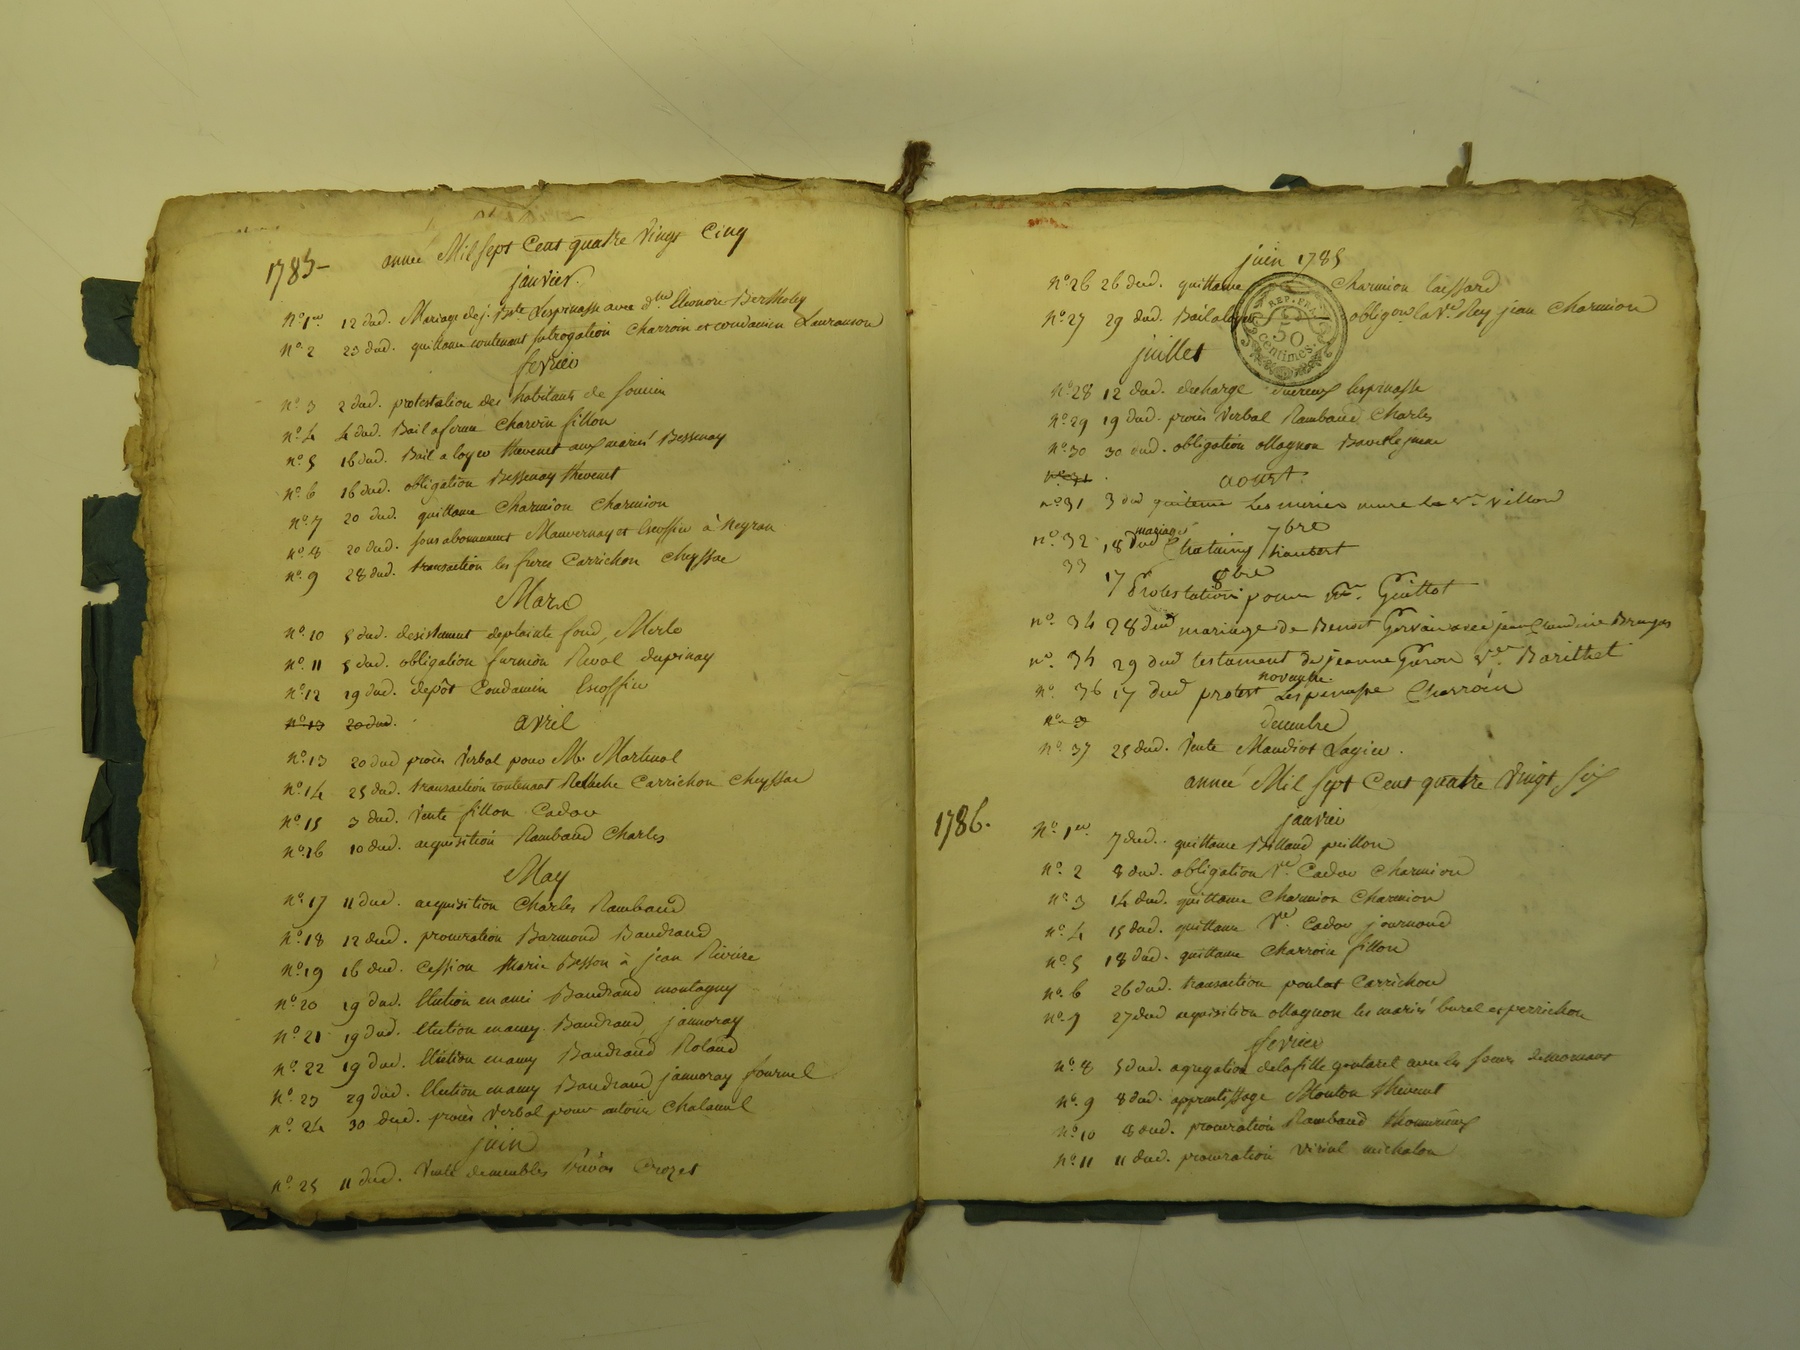 1785 -
année Mil sept Cent quatre Vingt Cinq
janvier.
n° 1er 12 dud. Mariage de j. Bte Lespinasse avec dlle Eleonore Bertholey
n° 2 23 dud. quittance contenant subrogation Charroin et condamin Lauranson
fevrier
n° 3 2 dud. protestation des habitants de
n° 4 4 dud. Bail a ferme Charvin fillon
n° 5 16 dud. Bail a loyer thevenet aux mariés Bessenay
n° 6 16 dud. obligation Bessenay thevenet
n° 7 20 dud. quittance Charmion Charmion
n° 8 20 dud. sous abonnement Mauvernay et Escoffier à Neyran
n° 9 28 dud. transaction les freres Carrichon Cheyssac
Mars
n° 10 5 dud. desistement de plainte fond, Merle
n° 11 5 dud. obligation furnion Reval dupinay
n° 12 19 dud. depôt Condamin Escoffier
n° 13 20 dud.
avril
n° 13 20 dud procès Verbal pour Mr. Martinol
n° 14 25 dud. transaction contenant Relache Carrichon Cheyssac
n° 15 3 dud. Vente fillon Cadou
n° 16 10 dud. acquisition Rambaud Charles
May
n° 17 11 dud. acquisition Charles Rambaud
n° 18 12 dud. procuration Barmond Baudrand
n° 19 16 dud. Cession Marie Besson à jean Riviere
n° 20 19 dud. Election en ami Baudrand montagny
n° 21 19 dud. Election en amy Baudrand, jannoray
n° 22 19 dud. Election en amy Baudrand Roland
n° 23 29 dud. Election en amy Baudrand jannoray fournel
n° 24 30 dud. procès Verbal pour antoine Chalamel
juin
n° 25 11 dud. Vente de meubles Crozet
juin 1785
n° 26 26 dud. quittance Charmion Caissard
n° 27 29 dud. Bail a loyer oblig.on la Ve Rey jean Charmion
REP. FRA.
50
centimes.
juillet
n° 28 12 dud. decharge Lespinasse
n° 29 19 dud. procès Verbal Rambaud Charles
n° 30 30 dud. obligation Magnon
n° 31
aoust.
n° 31 3 dud quittance Les mariés la Ve Villon
7bre
n° 32 18 dud mariage Chataing
33
8bre
17 Protestation pour Mr. Guittot
n° 34 28 dud mariage de Benoit Gervais avec jeanne Claudine Bruyas
n° 34 29 dud testament de jeanne Guron Ve Barithet
novembre
n° 36 17 dud protest Lespenasse Charroin
n° 3
decembre
n° 37 25 dud. Vente Maudiot Lagier.
année Mil sept Cent quatre Vingt six
1786.
janvier
n° 1er 7 dud. quittance Billaud
n° 2 8 dud. obligation Ve Cadou Charmion
n° 3 14 dud. quittance Charmion Charmion
n° 4 15 dud. quittance Ve Cadou journoud
n° 5 18 dud. quittance Charroin fillon
n° 6 26 dud. transaction poulat Carrichon
n° 7 27 dud acquisition Magnon les mariés burel et perrichon
fevrier
n° 8 5 dud. agregation de la fille goutarel avec les soeurs de mornant
n° 9 8 dud. apprentissage Mouton thevenet
n° 10 8 dud. procuration Rambaud
n° 11 11 dud. procuration Virial michalon